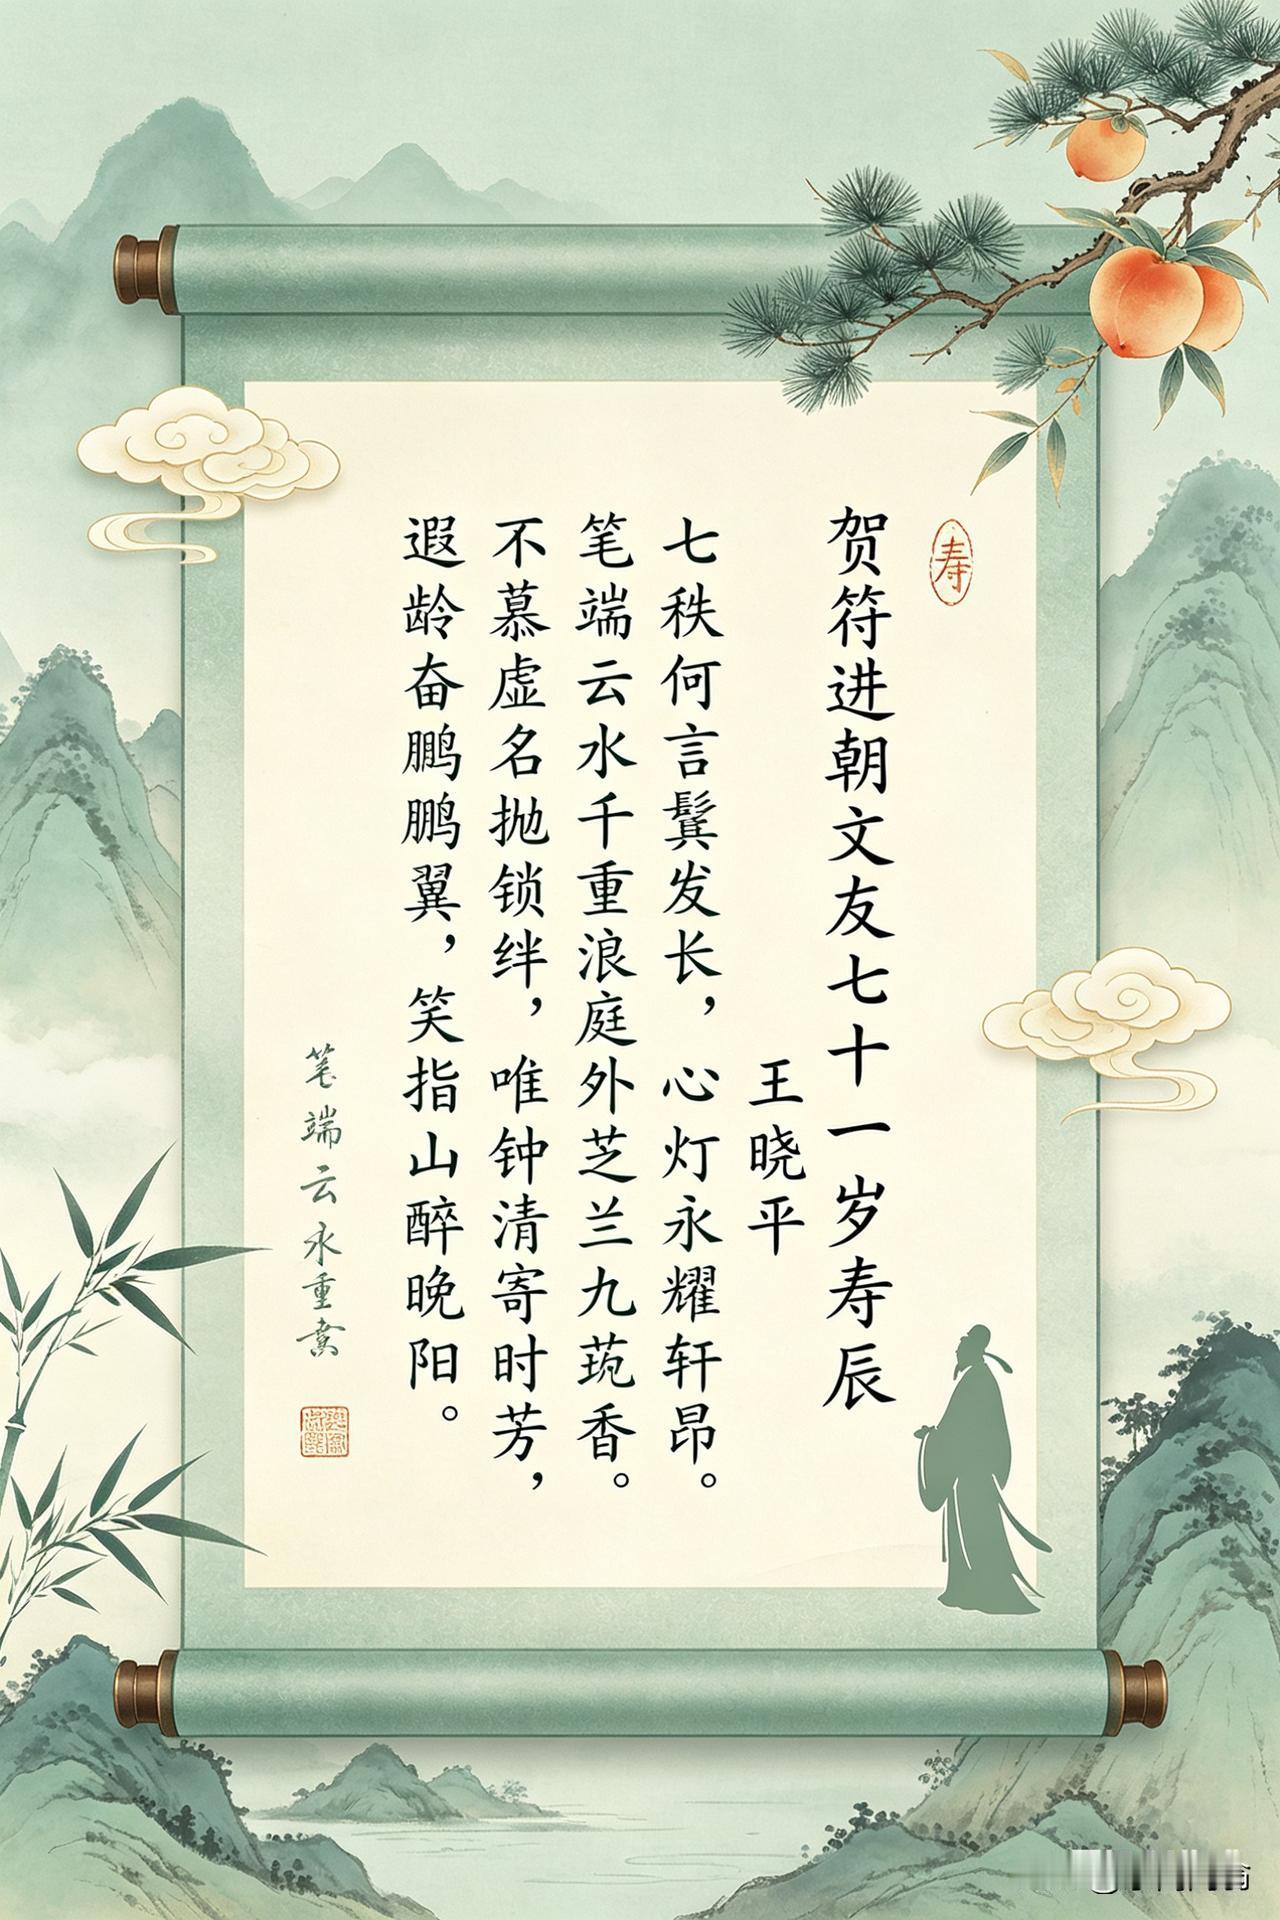 寿
贺符进朝文友七十一岁寿辰
王晓平
七秩何言鬓发长，心灯永耀轩昂。
笔端云水千重浪庭外芝兰九蒐香。
不慕虚名抛锁绊，唯钟清寄时芳，
遐龄奋鹏鹏翼，笑指山醉晚阳。
笔端云水重